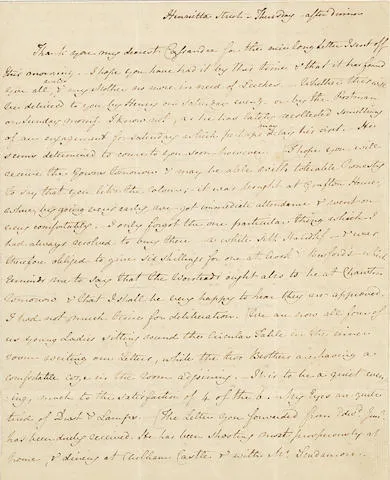 Henrietta Street - Thursday - after dinner
Thank you my dearest Cassandra for the nice long Letter I sent off
this morning. - I hope you have had it by this time & that it has found
you all well, & my Mother no more in need of Leeches. - Whether this will
be delivered to you by Henry on Saturday Eveng or by the Postman
on Sunday Morng I know not, as he has lately recollected something
of an engagement for Saturday, which perhaps may delay his visit. - He
seems determined to come to you soon however. - I hope you will
receive the Gown tomorrow & may be able with tolerable honesty
to say that you like the Colour; - it was bought at Grafton House,
where, by going very early, we got immediate attendance & went on
very comfortably. - I only forgot the one particular thing which I
had always resolved to buy there - a white silk Handkf - & was
therefore obliged to give six shillings for one at Crook & Besford's - which
reminds me to say that the Worsteads ought also to be at Chawton
Tomorrow & that I shall be very happy to hear they are approved.
I had not much time for deliberation. We are now all four of
us young Ladies sitting round the Circular Table in the inner
room writing our Letters, while the two Brothers are having a
comfortable coze in the room adjoining. - It is to be a quiet even-
-ing, much to the satisfaction of 4 of the 6. - My Eyes are quite
tired of Dust & Lamps. - The Letter you forwarded from Edwd Junr
has been duly received. He has been shooting most prosperously at
home, & dining at Chilham Castle & with Mr Scudamore.